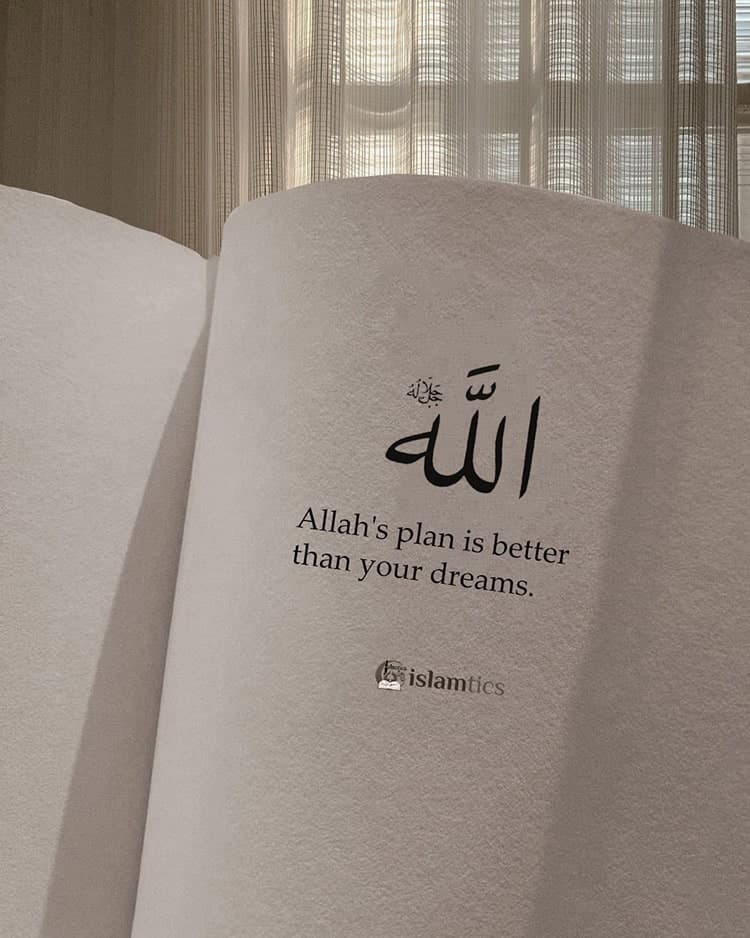 الله
جل جلاله
Allah's plan is better
than your dreams.
islamtics